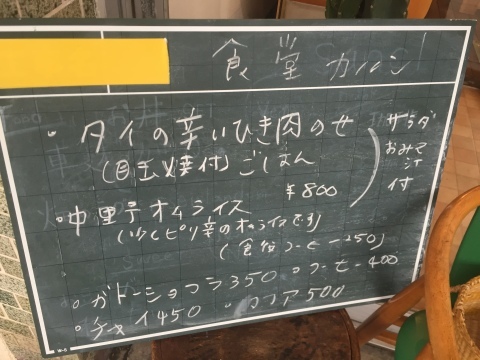 食堂 カルン
・タイの辛いひき肉のせ
(目玉焼付)ごはん
¥800
サラダ
おみそ汁
付
・中里子オムライス
(少しピリ辛のオムライスです)
(食后コーヒー250)
・ガトーショコラ350 ・コーヒー400
・チャイ450 ・ココア500